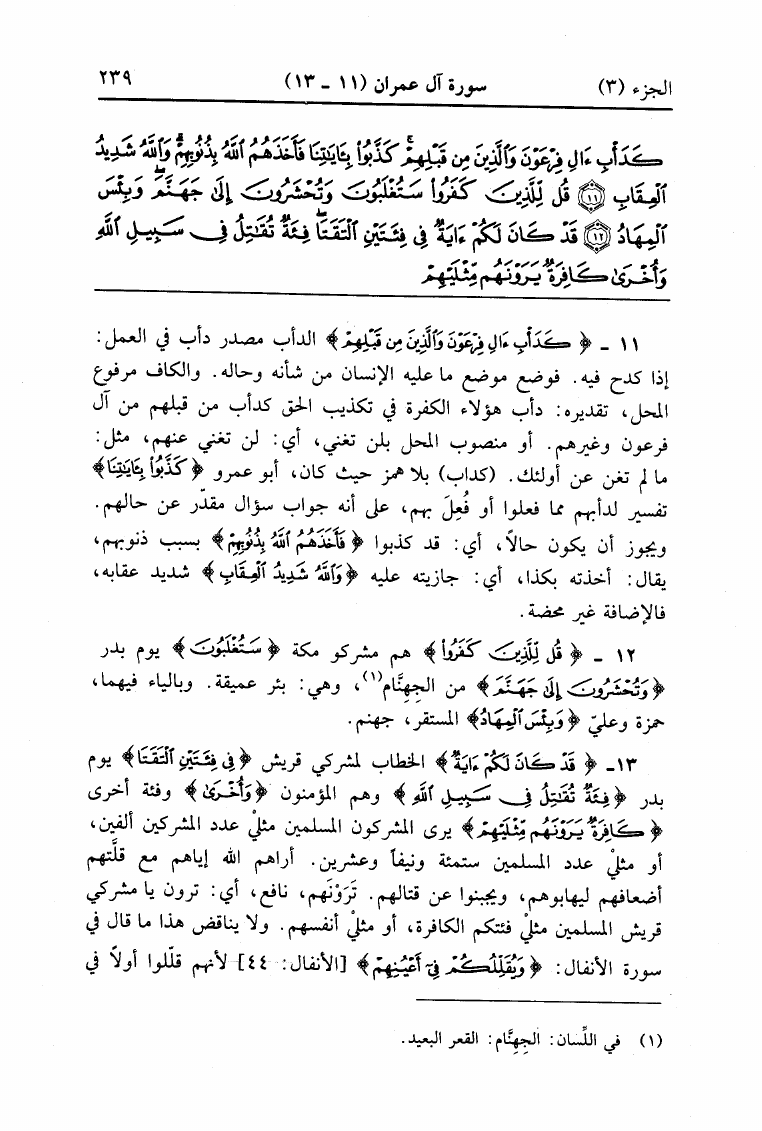 الجزء (٣) سورة آل عمران (١١ - ١٣) ٢٣٩
كَدَأْبِ ءَالِ فِرْعَوْنَ وَالَّذِينَ مِن قَبْلِهِمْ ۚ كَذَّبُوا۟ بِـَٔايَـٰتِنَا فَأَخَذَهُمُ ٱللَّهُ بِذُنُوبِهِمْ ۗ وَٱللَّهُ شَدِيدُ
ٱلْعِقَابِ ﴿١١﴾ قُل لِّلَّذِينَ كَفَرُوا۟ سَتُغْلَبُونَ وَتُحْشَرُونَ إِلَىٰ جَهَنَّمَ ۚ وَبِئْسَ
ٱلْمِهَادُ ﴿١٢﴾ قَدْ كَانَ لَكُمْ ءَايَةٌ فِى فِئَتَيْنِ ٱلْتَقَتَا ۖ فِئَةٌ تُقَـٰتِلُ فِى سَبِيلِ ٱللَّهِ
وَأُخْرَىٰ كَافِرَةٌ يَرَوْنَهُم مِّثْلَيْهِمْ
١١ - ﴿كَدَأْبِ ءَالِ فِرْعَوْنَ وَٱلَّذِينَ مِن قَبْلِهِمْ﴾ الدأب مصدر دأب في العمل:
إذا كدح فيه. فوضع موضع ما عليه الإنسان من شأنه وحاله. والكاف مرفوع
المحل، تقديره: دأب هؤلاء الكفرة في تكذيب الحق كدأب من قبلهم من آل
فرعون وغيرهم. أو منصوب المحل بلن تغني، أي: لن تغني عنهم، مثل:
ما لم تغن عن أولئك. (كداب) بلا همز حيث كان، أبو عمرو ﴿كَذَّبُوا۟ بِـَٔايَـٰتِنَا﴾
تفسير لدأبهم مما فعلوا أو فُعِلَ بهم، على أنه جواب سؤال مقدّر عن حالهم.
ويجوز أن يكون حالاً، أي: قد كذبوا ﴿فَأَخَذَهُمُ ٱللَّهُ بِذُنُوبِهِمْ﴾ بسبب ذنوبهم،
يقال: أخذته بكذا، أي: جازيته عليه ﴿وَٱللَّهُ شَدِيدُ ٱلْعِقَابِ﴾ شديد عقابه،
فالإضافة غير محضة.
١٢ - ﴿قُل لِّلَّذِينَ كَفَرُوا۟﴾ هم مشركو مكة ﴿سَتُغْلَبُونَ﴾ يوم بدر
﴿وَتُحْشَرُونَ إِلَىٰ جَهَنَّمَ﴾ من الجِهِنَّام(١)، وهي: بئر عميقة. وبالياء فيهما،
حمزة وعليّ ﴿وَبِئْسَ ٱلْمِهَادُ﴾ المستقر، جهنم.
١٣- ﴿قَدْ كَانَ لَكُمْ ءَايَةٌ﴾ الخطاب لمشركي قريش ﴿فِى فِئَتَيْنِ ٱلْتَقَتَا﴾ يوم
بدر ﴿فِئَةٌ تُقَـٰتِلُ فِى سَبِيلِ ٱللَّهِ﴾ وهم المؤمنون ﴿وَأُخْرَىٰ﴾ وفئة أخرى
﴿كَافِرَةٌ يَرَوْنَهُم مِّثْلَيْهِمْ﴾ يرى المشركون المسلمين مثليْ عدد المشركين ألفين،
أو مثليْ عدد المسلمين ستمئة ونيفاً وعشرين. أراهم الله إياهم مع قلَّتهم
أضعافهم ليهابوهم، ويجبنوا عن قتالهم. تَرَوْنَهم، نافع، أي: ترون يا مشركي
قريش المسلمين مثليْ فئتكم الكافرة، أو مثليْ أنفسهم. ولا يناقض هذا ما قال في
سورة الأنفال: ﴿وَيُقَلِّلُكُمْ فِىٓ أَعْيُنِهِمْ﴾ [الأنفال: ٤٤] لأنهم قلّلوا أولاً في
(١) في اللِّسان: الجِهِنَّام: القعر البعيد.